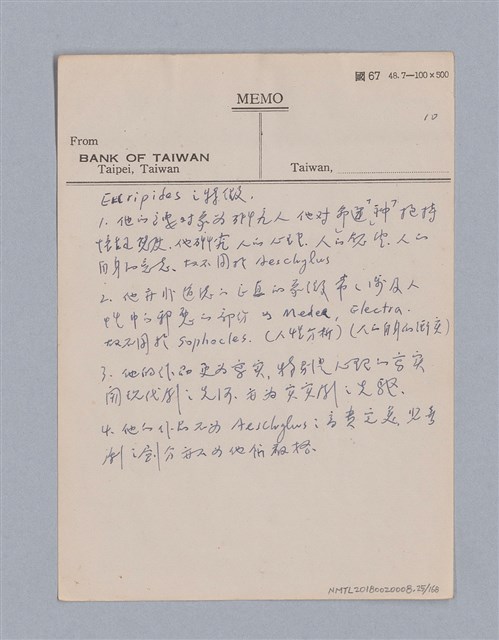 國 67 48.7—100×500
MEMO
10
From
BANK OF TAIWAN
Taipei, Taiwan
Taiwan,
Euripides之特徵.
1. 他的主要對象為研究人 他對希運「神」抱持
懷疑態度. 他研究人的心理、人的
自身的意志、故不同於 Aeschylus
2. 他并非道德的正直的象徵 常之涉及人
性中的邪惡的部分 如 Medea, Electra.
故不同於 Sophocles. (人性分析) (人的自身的衝突)
3. 他的作品更為寫實, 特別是心理的寫實
開現代劇之先河. 亦為寫實劇之先驅.
4. 他的作品不如 Aeschylus 之高貴完美
劇之劃分亦不如他們嚴格.
NMTL20180020008.25/168